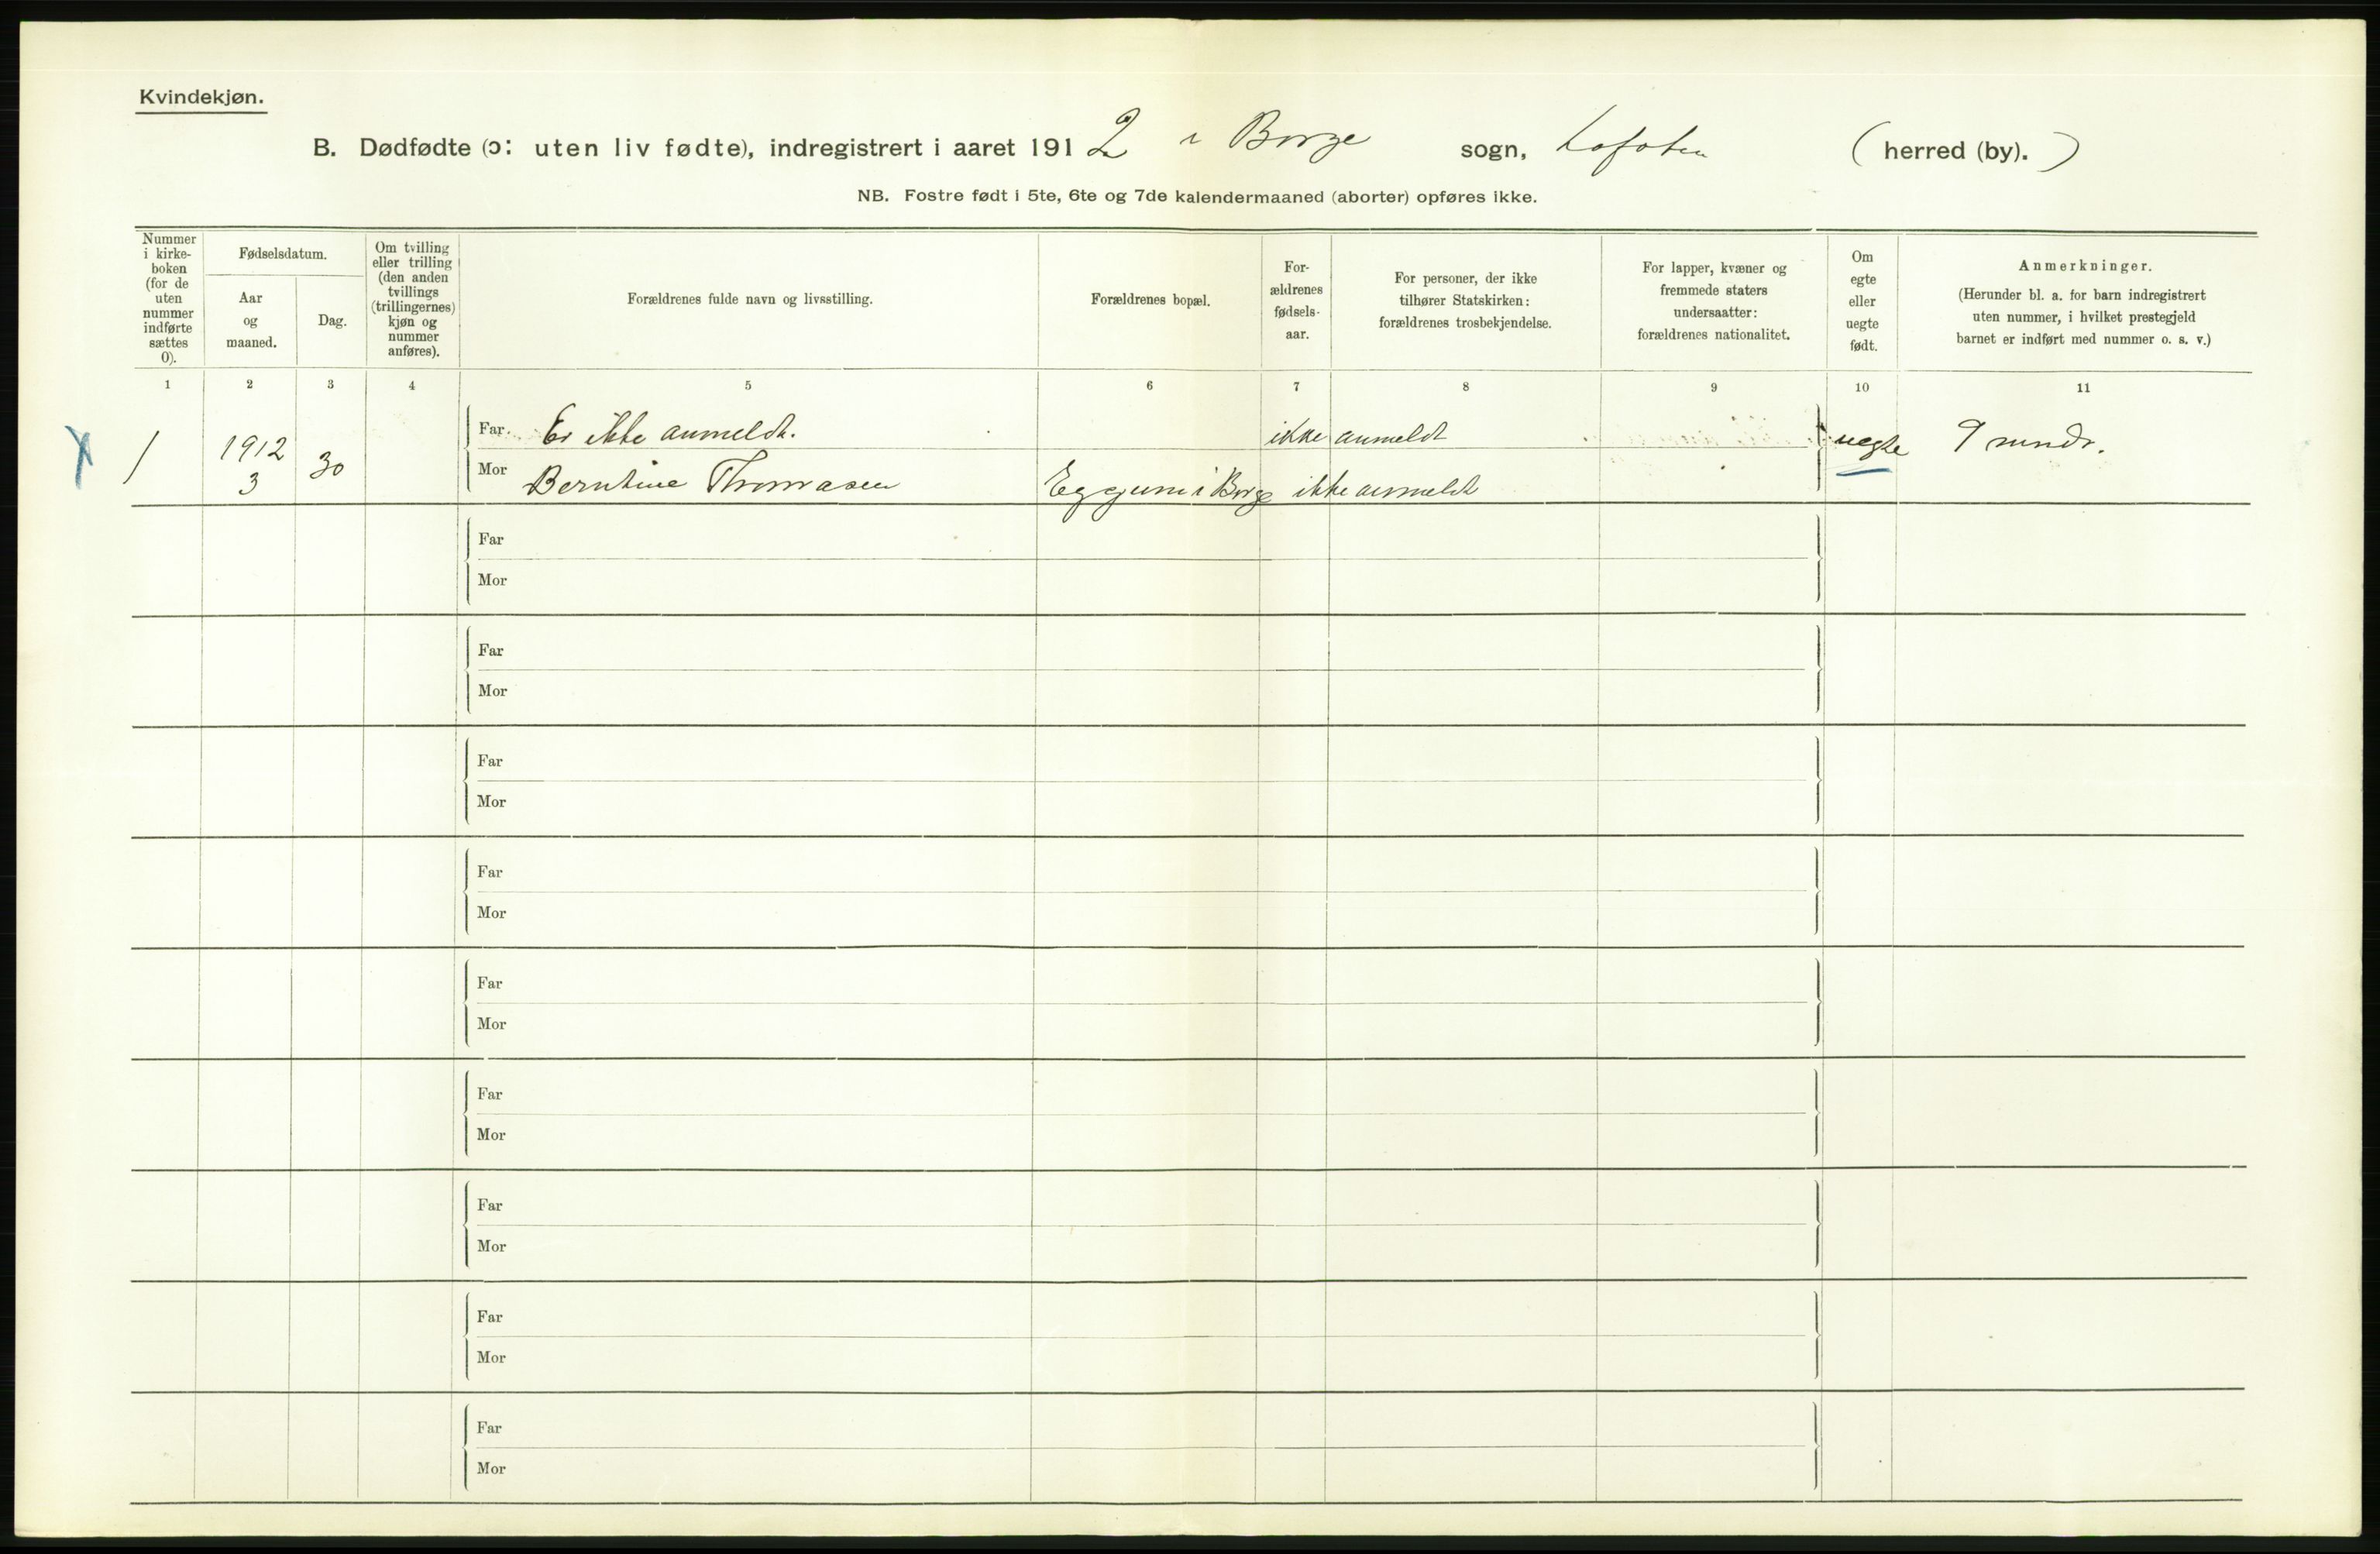 Kvindekjøn.
B. Dødfødte (ɔ: uten liv fødte), indregistrert i aaret 1912 i Borge sogn, Lofoten (herred (by).)
NB. Fostre født i 5te, 6te og 7de kalendermaaned (aborter) opføres ikke.
Nummer i kirke-boken (for de uten nummer indførte sættes 0).
Fødselsdatum.
Aar og maaned.
Dag.
Om tvilling eller trilling (den anden tvillings (trillingernes) kjøn og nummer anføres).
Forældrenes fulde navn og livsstilling.
Forældrenes bopæl.
For-ældrenes fødsels-aar.
For personer, der ikke tilhører Statskirken: forældrenes trosbekjendelse.
For lapper, kvæner og fremmede staters undersaatter: forældrenes nationalitet.
Om egte eller uegte født.
Anmerkninger.
(Herunder bl. a. for barn indregistrert uten nummer, i hvilket prestegjeld barnet er indført med nummer o. s. v.)
1 2 3 4 5 6 7 8 9 10 11
X 1 1912 3 30
Far. Er ikke anmeldt. ikke anmeldt uegte 9 mndr.
Mor Berntine Thomasen Eggum i Borge ikke anmeldt
Far
Mor
Far
Mor
Far
Mor
Far
Mor
Far
Mor
Far
Mor
Far
Mor
Far
Mor
Far
Mor